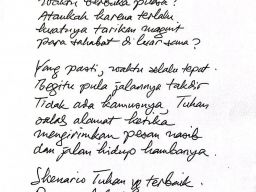 waktu berbuka puasa?
Ataukah karena terlalu
kuatnya tarikan magnit
para sahabat di luar sana?
Yang pasti, waktu selalu tepat.
Begitu pula jalannya takdir
Tidak ada kamusnya Tuhan
salah alamat ketika
mengirimkan pesan nasib
dan jalan hidup hambanya.
Skenario Tuhan yg terbaik.